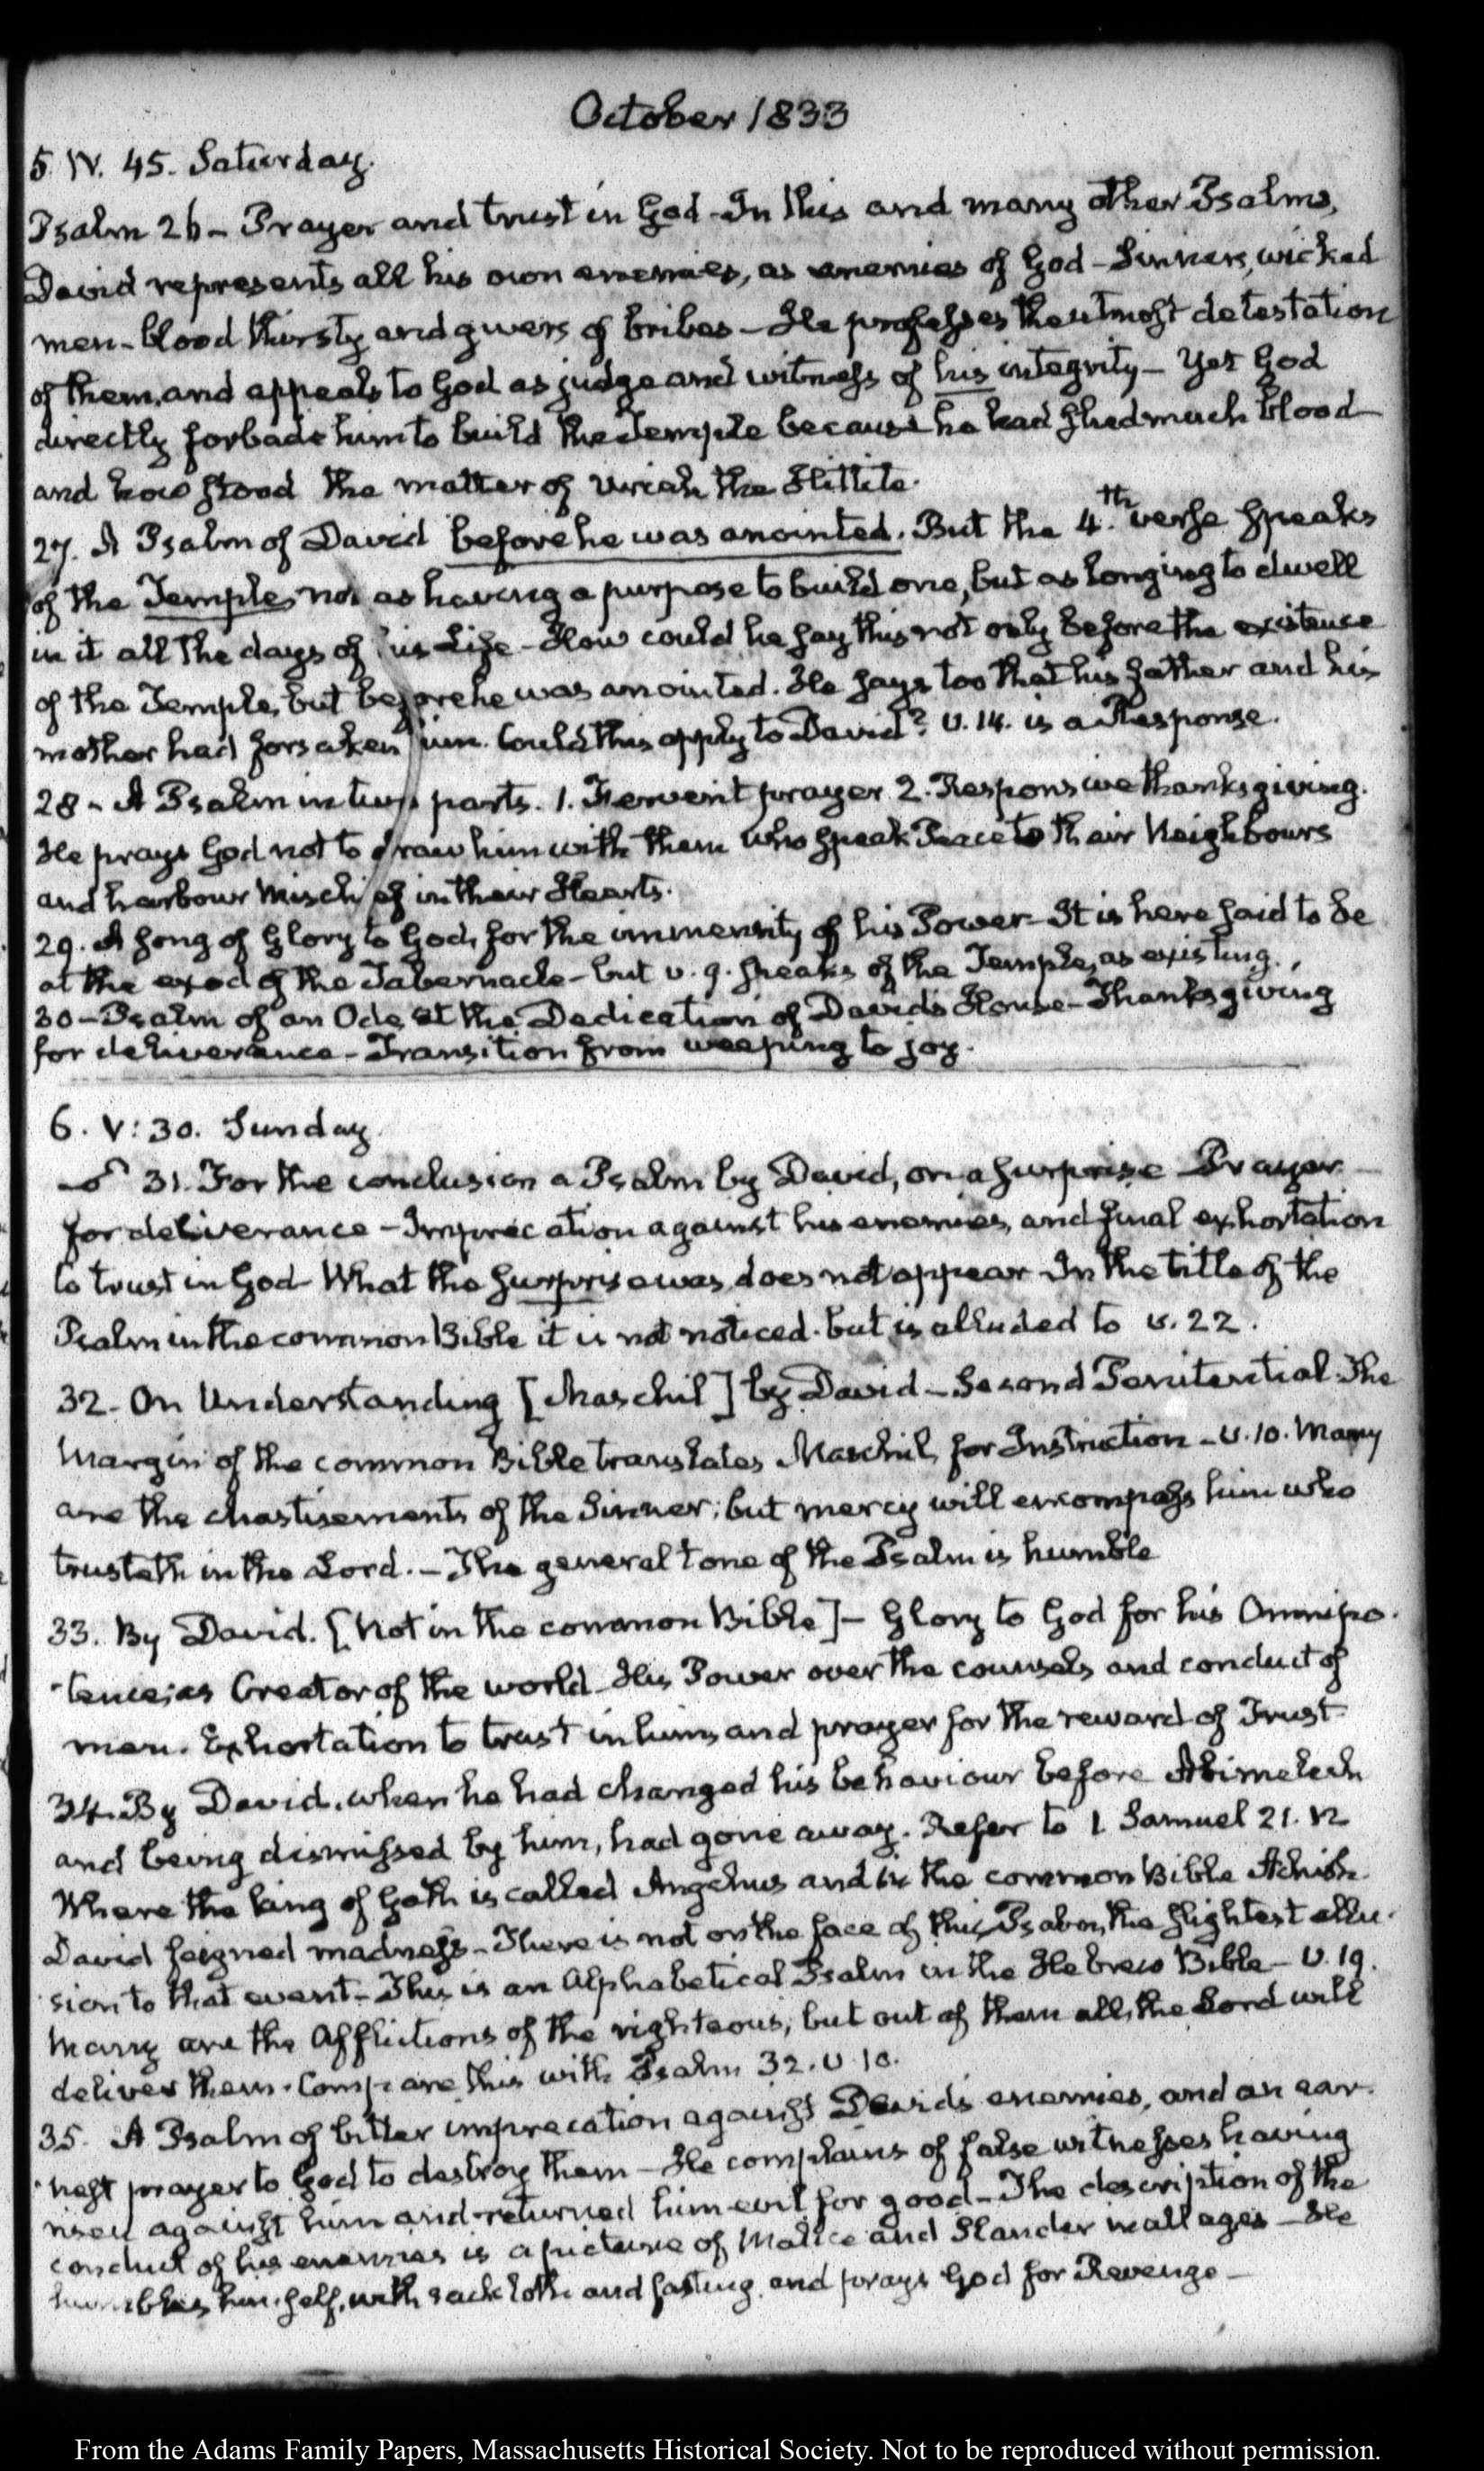 October 1833
5. IV. 45. Saturday.
Psalm 26 - Prayer and trust in God - In this and many other Psalms,
David represents all his own enemies, as enemies of God - Sinners, wicked
men - blood thirsty and givers of bribes - He professes the utmost detestation
of them, and appeals to God as judge and witness of his integrity - Yet God
directly forbade him to build the Temple because he had shed much blood -
and how stood the matter of Uriah the Hittite.
27. A Psalm of David before he was anointed. But the 4.th verse speaks
of the Temple, not as having a purpose to build one, but as longing to dwell
in it all the days of his Life - How could he say this not only before the existence
of the Temple, but before he was anointed. He says too that his father and his
mother had forsaken him. Could this apply to David? v. 14. is a Response.
28 - A Psalm in two parts. 1. Fervent prayer 2. Responsive thanksgiving.
He prays God not to draw him with them who speak Peace to their Neighbours
and harbour Mischief in their Hearts.
29. A song of Glory to God, for the immensity of his Power - It is here said to be
at the exod of the Tabernacle - but v. 9. speaks of the Temple, as existing.
30 - Psalm of an Ode, at the Dedication of David's House - Thanksgiving
for deliverance - Transition from weeping to joy.
6. V: 30. Sunday.
31. For the conclusion a Psalm by David, on a surprise Prayer
for deliverance - Imprecation against his enemies, and final exhortation
to trust in God - What the surprise was, does not appear - In the title of the
Psalm in the common Bible it is not noticed. but is alluded to v. 22.
32 - On Understanding [Maschil] by David - Second Penitential. The
Margin of the common Bible translates Maschil, for Instruction - v. 10. Many
are the chastisements of the Sinner; but mercy will encompass him who
trusteth in the Lord. - The general tone of the Psalm is humble
33. By David. [Not in the common Bible] - Glory to God for his Omnipo-
-tence; as Creator of the world - His Power over the counsels and conduct of
men. Exhortation to trust in him, and prayer for the reward of Trust
34. By David. when he had changed his behaviour before Abimelech
and being dismissed by him, had gone away. Refer to 1 Samuel 21. 12
Where the king of Gath is called Angchus and in the common Bible Achish
David feigned madness - There is not on the face of this Psalm, the slightest allu-
sion to that event - This is an Alphabetical Psalm in the Hebrew Bible - v. 19.
Many are the Afflictions of the righteous; but out of them all, the Lord will
deliver them. Compare this with Psalm 32. v. 10.
35. A Psalm of bitter imprecation against David's enemies, and an ear-
-nest prayer to God to destroy them - He complains of false witnesses having
risen against him and returned him evil for good - The description of the
conduct of his enemies is a picture of Malice and Slander in all ages - He
humbles himself, with sackloth and fasting, and prays God for Revenge -
From the Adams Family Papers, Massachusetts Historical Society. Not to be reproduced without permission.